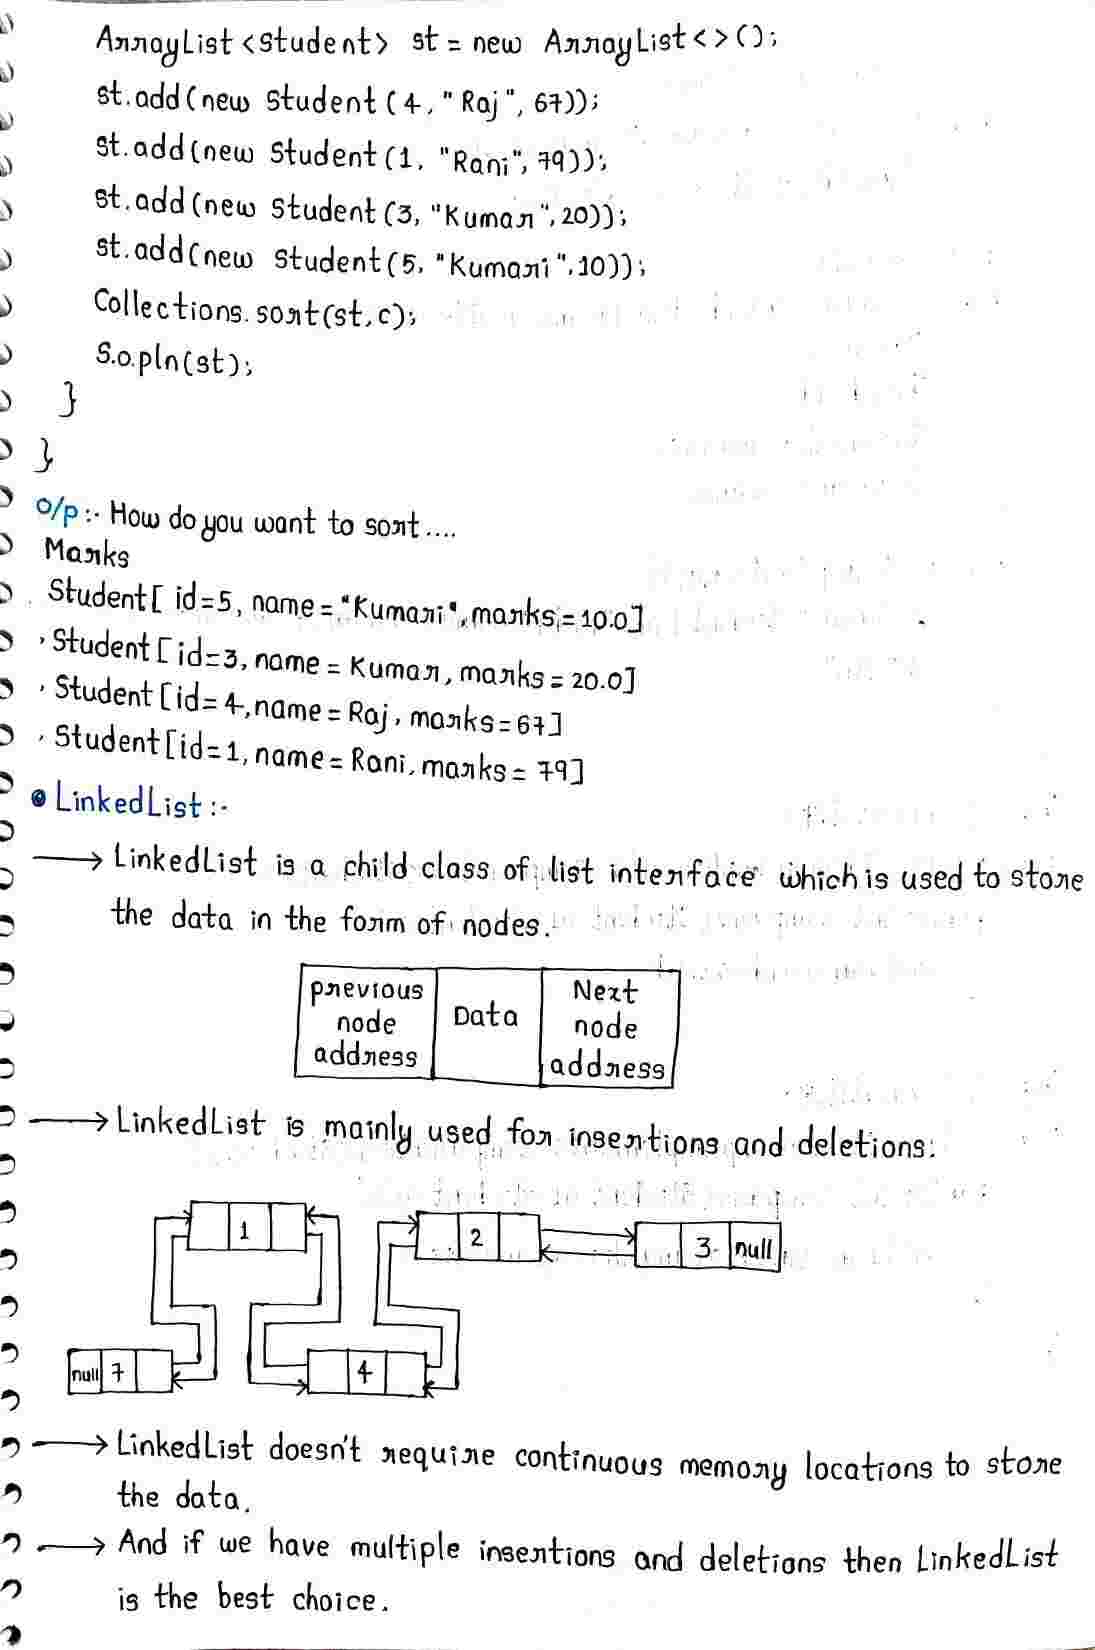 ArrayList<Student> st = new ArrayList<>();
st.add(new Student (4, "Raj", 67));
st.add(new Student (1, "Rani", 79));
st.add(new Student (3, "Kumar", 20));
st.add(new Student (5, "Kumari", 10));
Collections.sort(st,c);
S.o.pln(st);
}
}
O/p:- How do you want to sort....
Marks
Student[ id=5, name="Kumari", marks=10.0]
, Student [id=3, name = Kumar, marks = 20.0]
, Student [id=4, name = Raj, marks = 67]
, Student [id=1, name = Rani, marks = 79]
LinkedList :-
→ LinkedList is a child class of list interface which is used to store
the data in the form of nodes.
previous node address Data Next node address
→ LinkedList is mainly used for insertions and deletions.
1 2 3 null
null 7 4
→ LinkedList doesn't require continuous memory locations to store
the data.
→ And if we have multiple insertions and deletions then LinkedList
is the best choice.